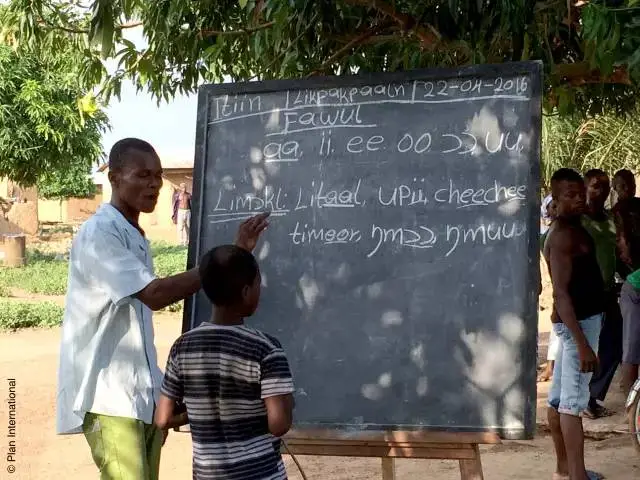 Itiin | Likpakpaaln | 22-04-2016
Fawul
aa, ii, ee, oo, ɔɔ, uu,
Limɔkl: Litaal, upii, cheechee
timoor, ŋmɔɔ, ŋmuu
© Plan International